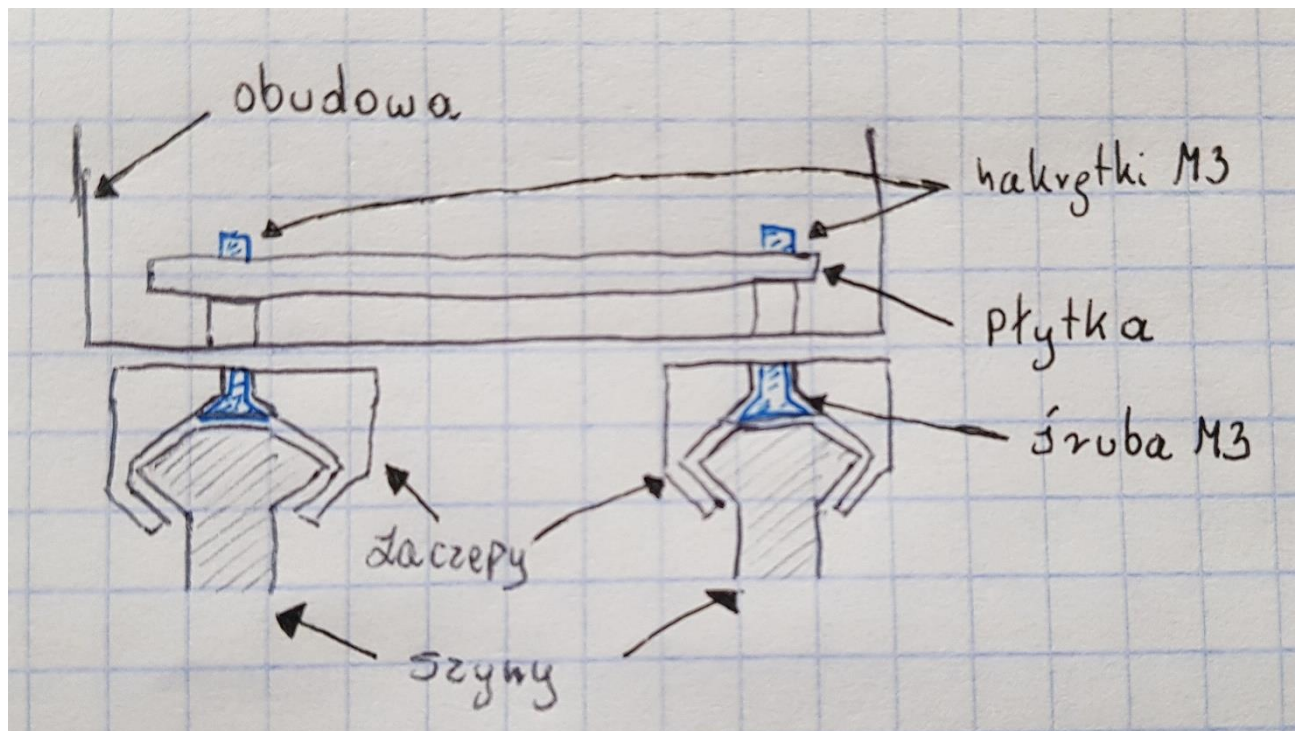 obudowa
nakrętki M3
płytka
śruba M3
zaczepy
szyny